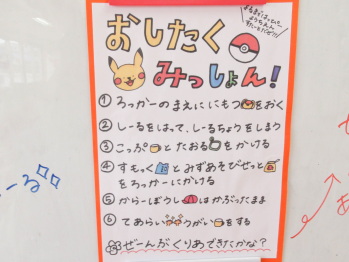 おしたく
みっしょん!
① ろっかーのまえににもつをおく
② しーるをはって、しーるちょうをしまう
③ こっぷとたおるをかける
④ すもっくとみずあそびせっと
をろっかーにかける
⑤ からーぼうしはかぶったまま
⑥ てあらいうがいをする
ぜーんぶくりあできたかな?
ーる